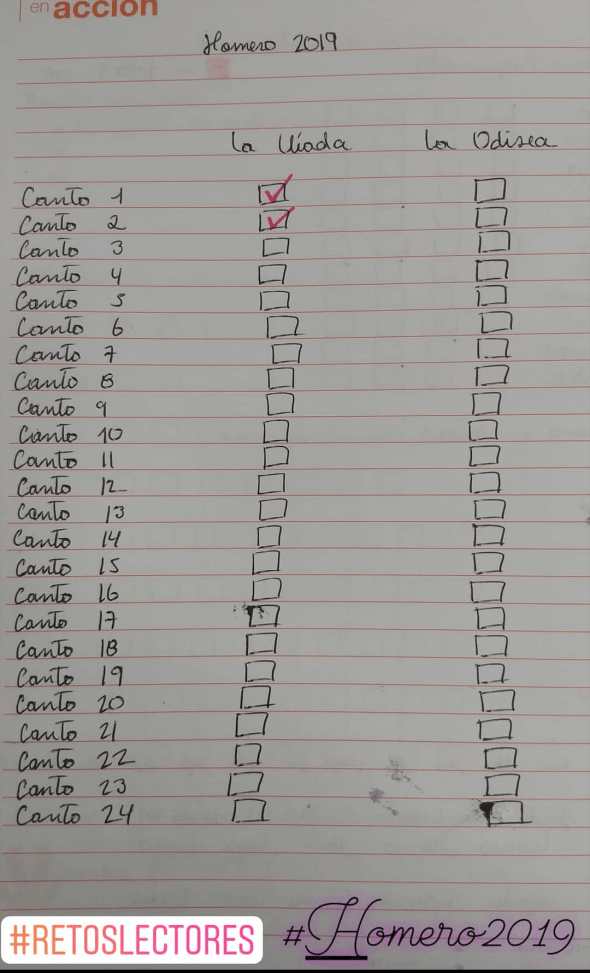 en acción
Homero 2019
La Ilíada La Odisea
Canto 1
Canto 2
Canto 3
Canto 4
Canto 5
Canto 6
Canto 7
Canto 8
Canto 9
Canto 10
Canto 11
Canto 12
Canto 13
Canto 14
Canto 15
Canto 16
Canto 17
Canto 18
Canto 19
Canto 20
Canto 21
Canto 22
Canto 23
Canto 24
#RETOSLECTORES #Homero2019